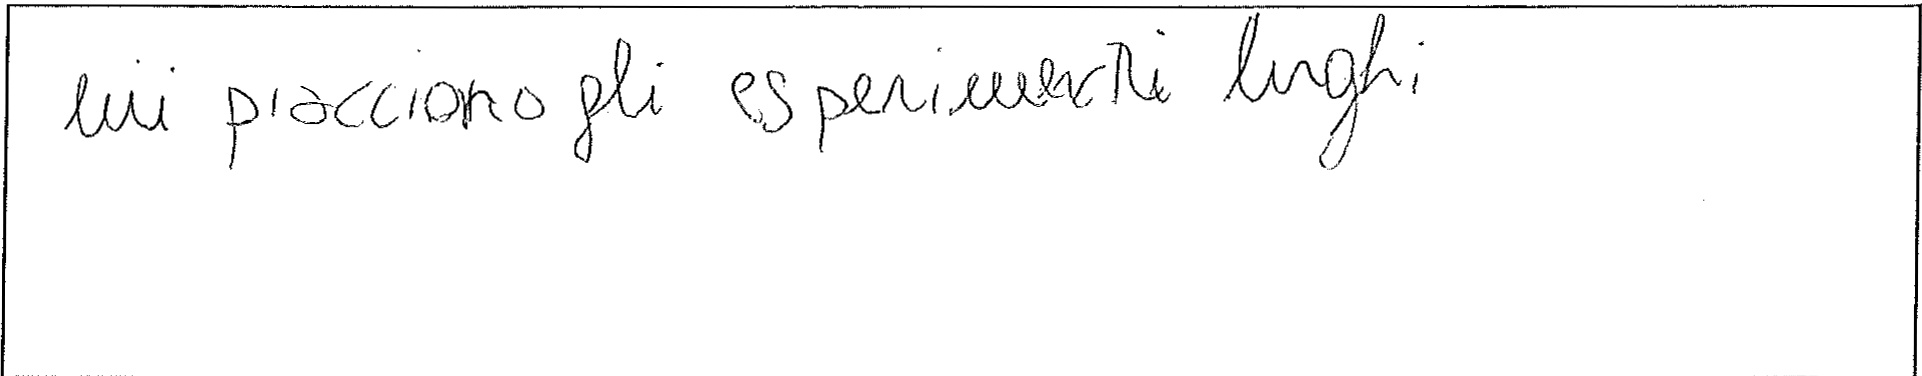 mi piacciono gli esperimenti lughi